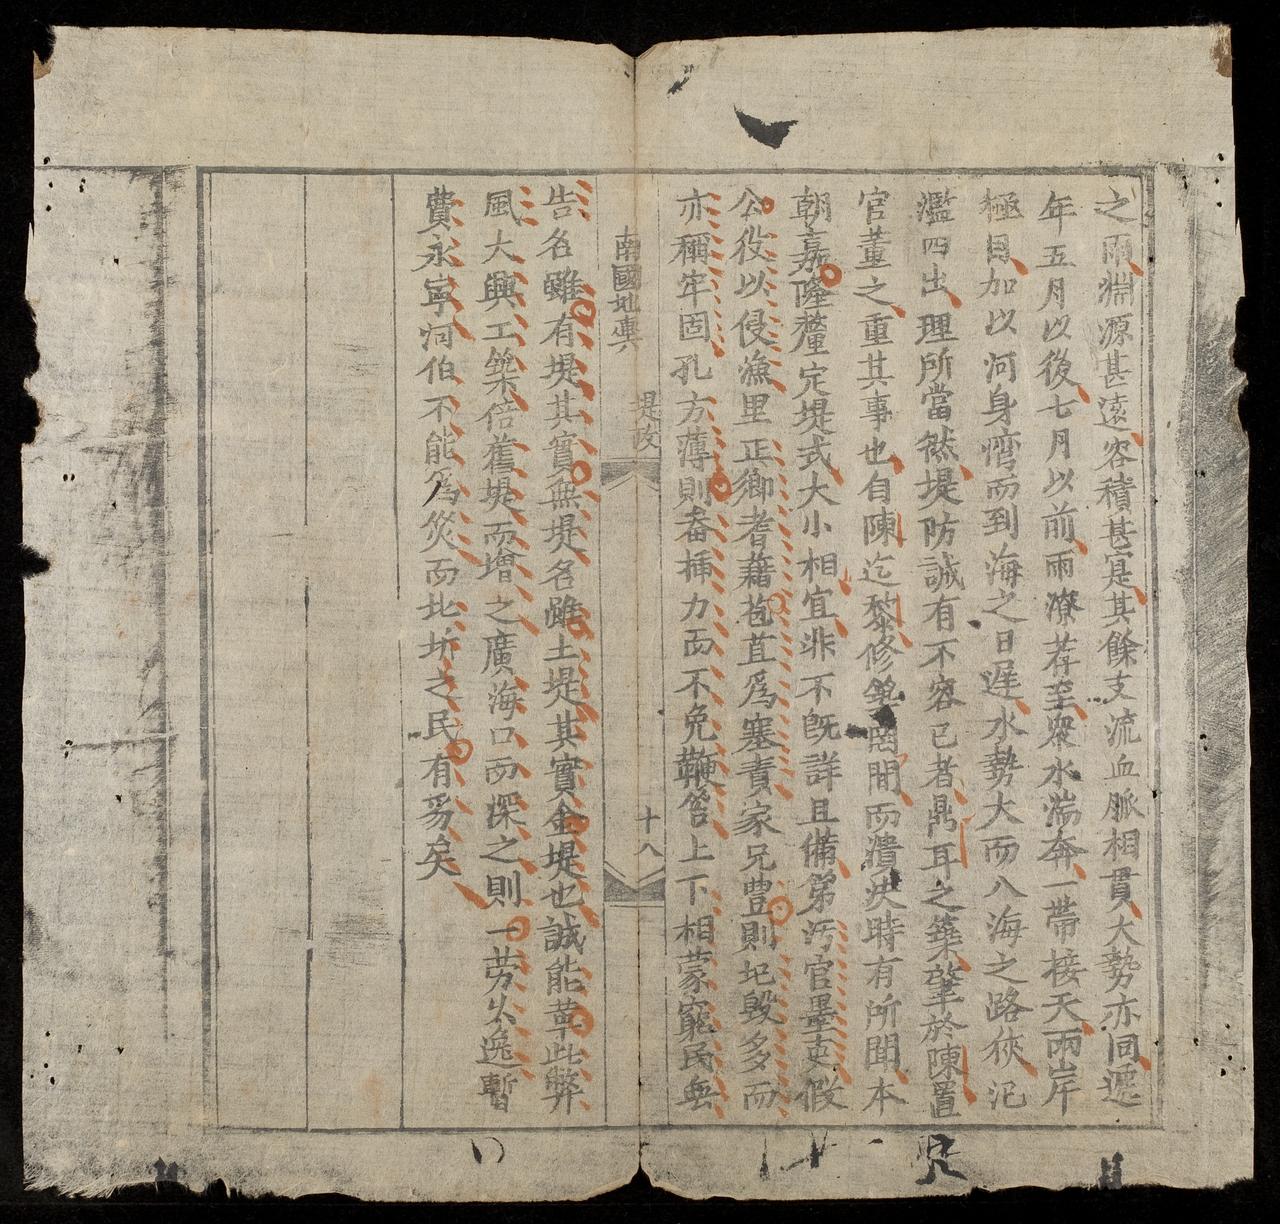 之雨淵源甚遠容積甚寔其餘支流血脈相貫大勢亦同遞
年五月以後七月以前雨潦荐至衆水湍奔一帶接天兩岸
極目加以河身灣而到海之日遲水勢大而入海之路狹汜
濫四出理所當然堤防誠有不容已者鼎耳之築肇於陳置
官董之重其事也自陳迄黎修築間而潰决時有所聞本
朝嘉隆釐定堤式大小相宜非不既詳且備第汚官墨吏假
公役以侵漁里正鄉耆藉苞苴爲塞責家兄豊則圮毀多而
亦稱牢固孔方薄則畚揷力而不免鞭笞上下相蒙窮民無
南國地輿 堤政 十八
告名雖有堤其實無堤名雖土堤其實金堤也誠能革此弊
風大興工築倍舊堤而增之廣海口而深之則一劳久逸暫
費永寧河伯不能爲災而北圻之民有豸矣